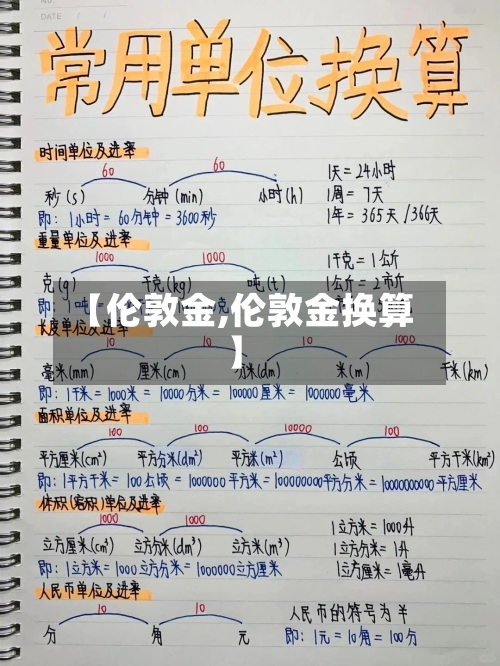 NO:
DATE / /
常用单位换算
时间单位及进率
60 60
秒(s) 分钟(min) 小时(h)
即: 1小时 = 60分钟 = 3600秒
1天 = 24小时
1周 = 7天
1年 = 365天/366天
重量单位及进率
1000 1000
克(g) 千克(kg) 吨(t)
即: 1吨
1千克 = 1公斤
1公斤 = 2市斤
【伦敦金,伦敦金换算】
长度单位及进率
10 10 10 1000
毫米(mm) 厘米(cm) 分米(dm) 米(m) 千米(km)
即: 1千米 = 1000米 = 10000分米 = 100000厘米 = 1000000毫米
面积单位及进率
100 100 10000 100
平方厘米(cm²) 平方分米(dm²) 平方米(m²) 公顷 平方千米(km²)
即: 1平方千米 = 100公顷 = 1000000平方米 = 100000000平方分米 = 10000000000平方厘米
体积(容积)单位及进率
1000 1000
立方厘米(cm³) 立方分米(dm³) 立方米(m³)
即: 1立方米 = 1000立方分米 = 1000000立方厘米
1立方米 = 1000升
1立方分米 = 1升
1立方厘米 = 1毫升
人民币单位及进率
10 10
分 角 元
人民币的符号为¥
即: 1元 = 10角 = 100分